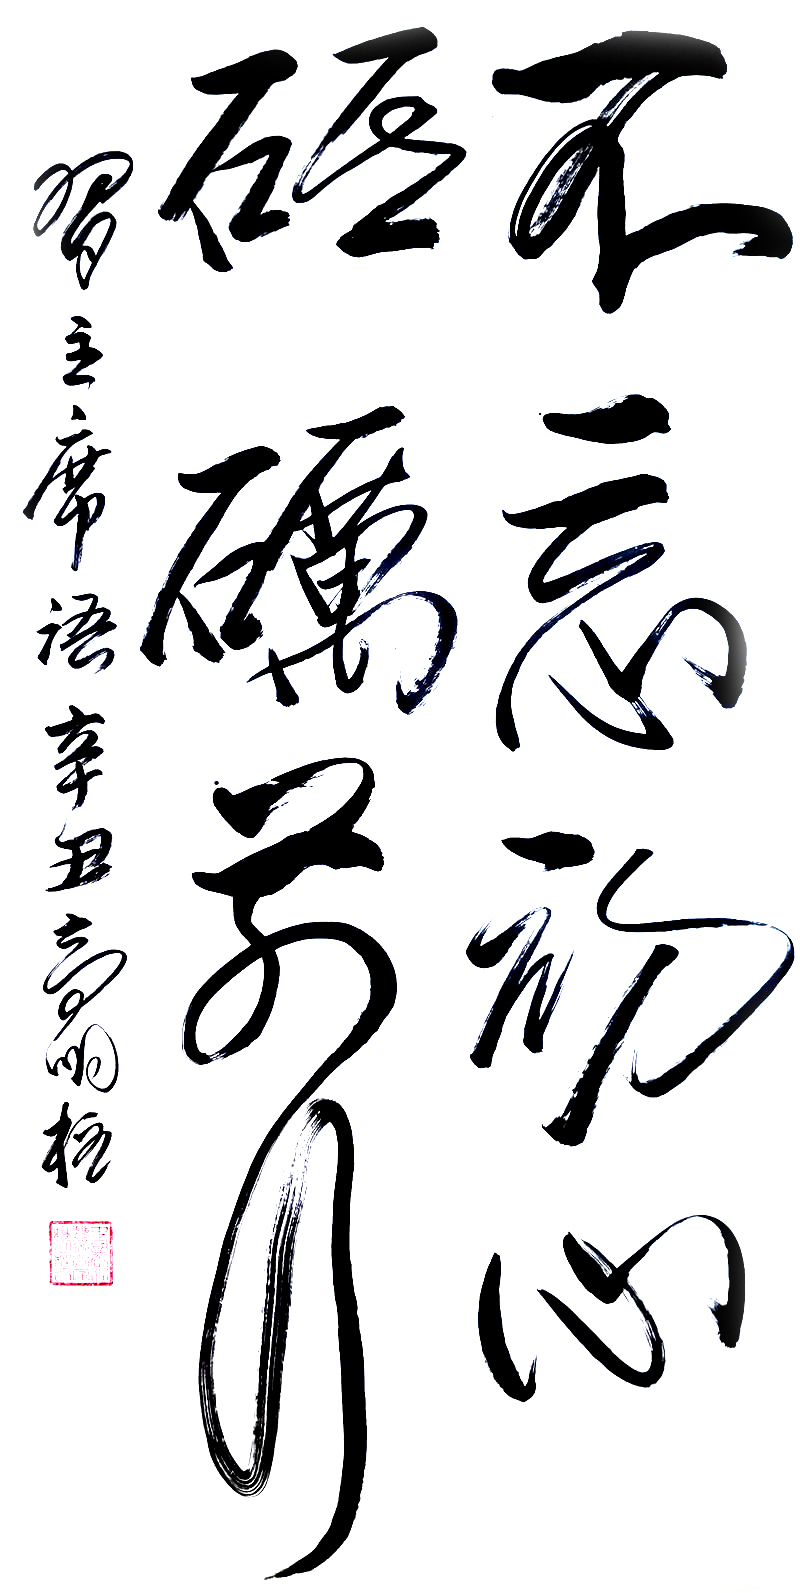 不忘初心
砥礪前行
習主席語辛丑高明柽